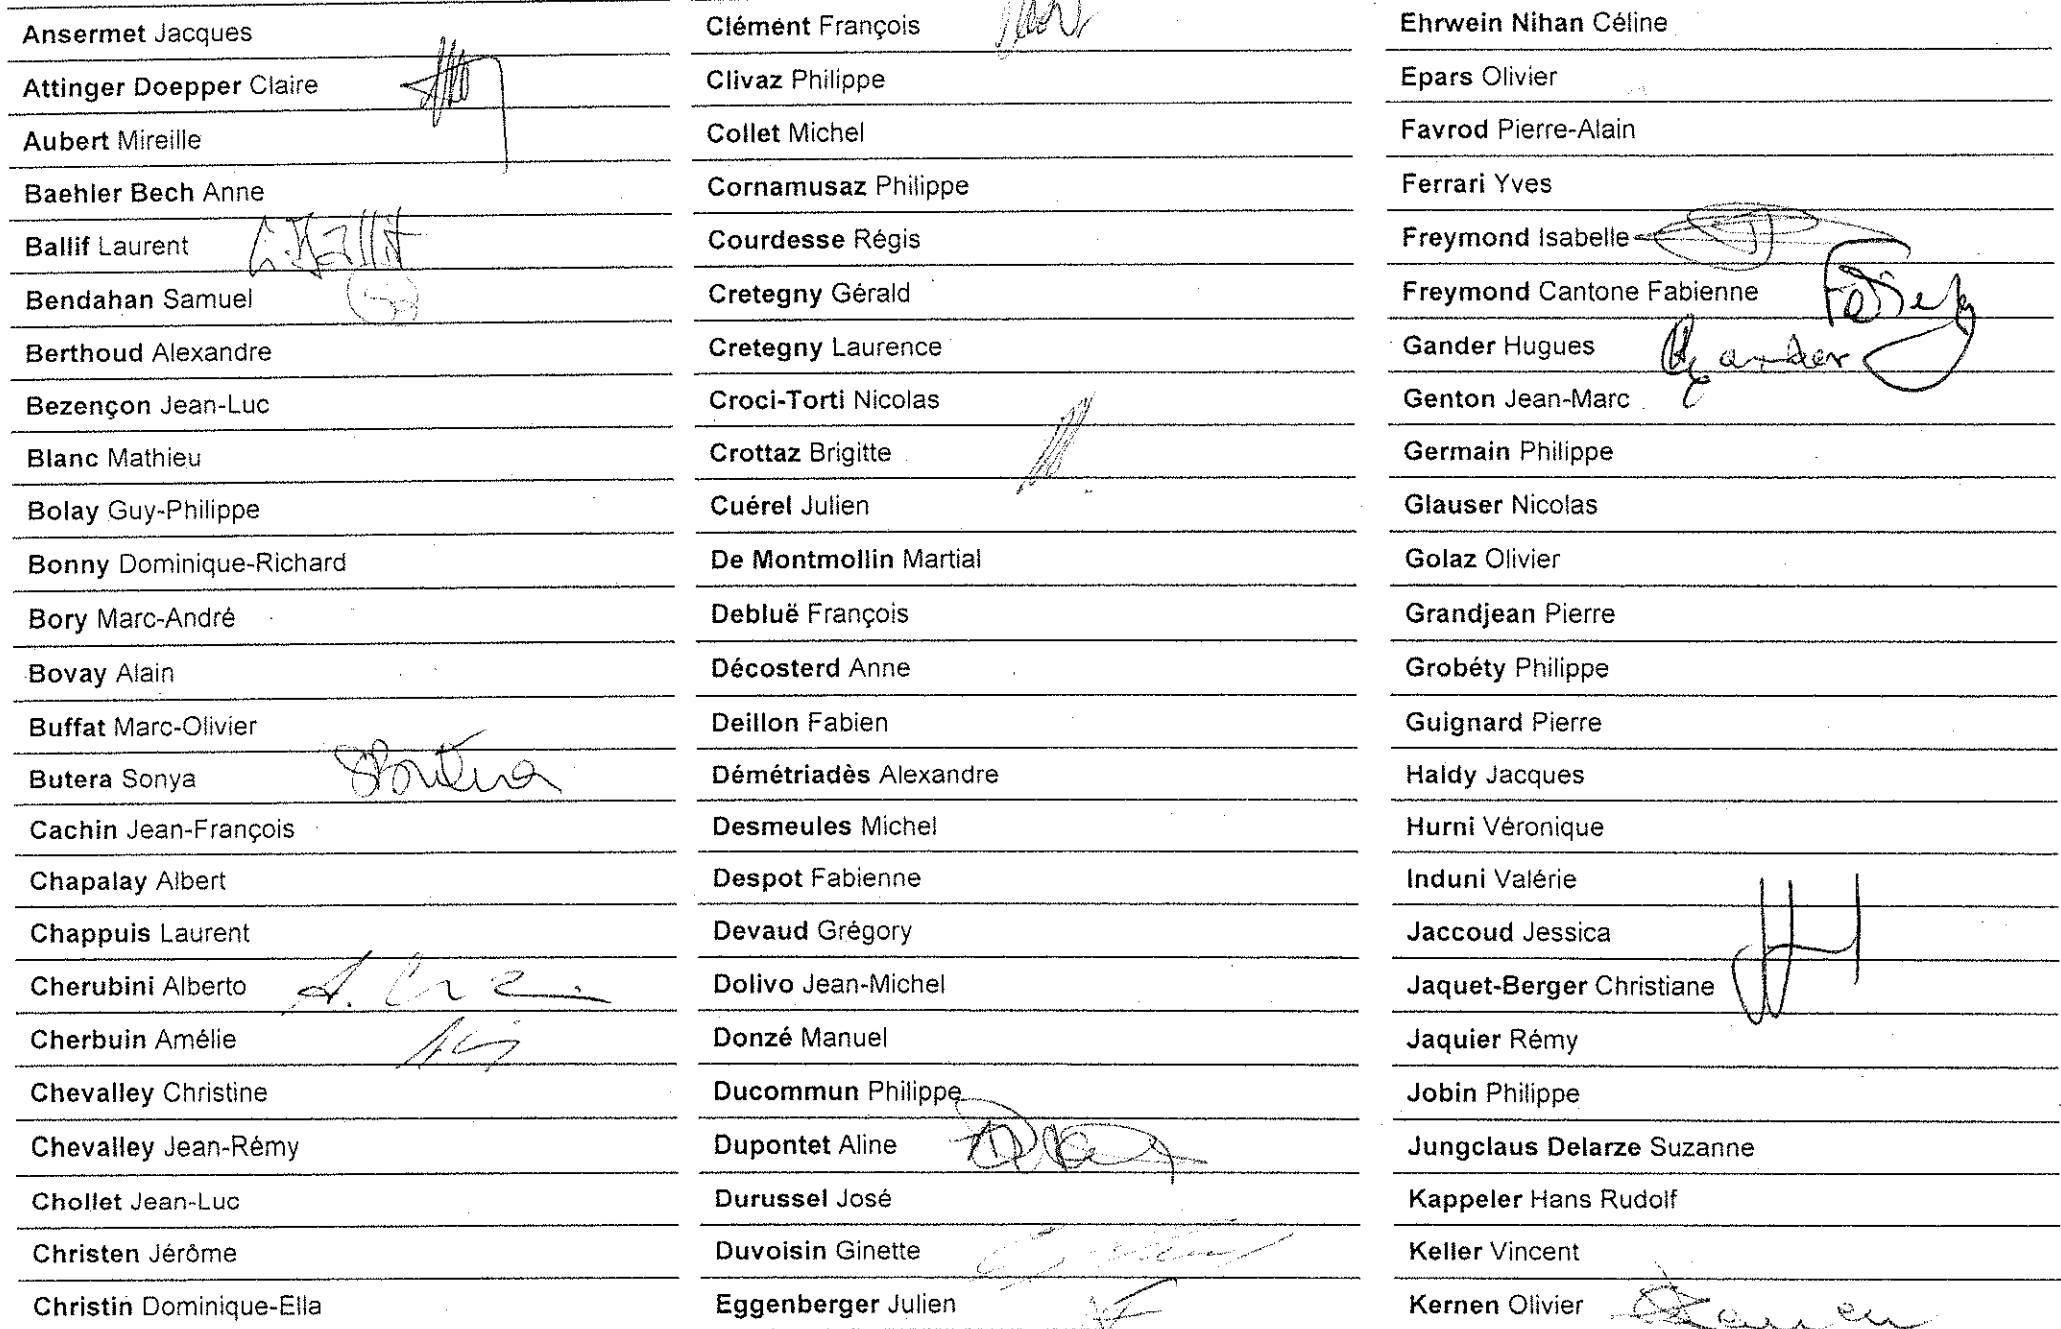 Ansermet Jacques
Attinger Doepper Claire
Aubert Mireille
Baehler Bech Anne
Ballif Laurent
Bendahan Samuel
Berthoud Alexandre
Bezençon Jean-Luc
Blanc Mathieu
Bolay Guy-Philippe
Bonny Dominique-Richard
Bory Marc-André
Bovay Alain
Buffat Marc-Olivier
Butera Sonya SButera
Cachin Jean-François
Chapalay Albert
Chappuis Laurent
Cherubini Alberto
Cherbuin Amélie
Chevalley Christine
Chevalley Jean-Rémy
Chollet Jean-Luc
Christen Jérôme
Christin Dominique-Ella
Clément François
Clivaz Philippe
Collet Michel
Cornamusaz Philippe
Courdesse Régis
Cretegny Gérald
Cretegny Laurence
Croci-Torti Nicolas
Crottaz Brigitte
Cuérel Julien
De Montmollin Martial
Debluë François
Décosterd Anne
Deillon Fabien
Démétriadès Alexandre
Desmeules Michel
Despot Fabienne
Devaud Grégory
Dolivo Jean-Michel
Donzé Manuel
Ducommun Philippe
Dupontet Aline
Durussel José
Duvoisin Ginette
Eggenberger Julien
Ehrwein Nihan Céline
Epars Olivier
Favrod Pierre-Alain
Ferrari Yves
Freymond Isabelle
Freymond Cantone Fabienne
Gander Hugues Gander
Genton Jean-Marc
Germain Philippe
Glauser Nicolas
Golaz Olivier
Grandjean Pierre
Grobéty Philippe
Guignard Pierre
Haldy Jacques
Hurni Véronique
Induni Valérie
Jaccoud Jessica
Jaquet-Berger Christiane
Jaquier Rémy
Jobin Philippe
Jungclaus Delarze Suzanne
Kappeler Hans Rudolf
Keller Vincent
Kernen Olivier